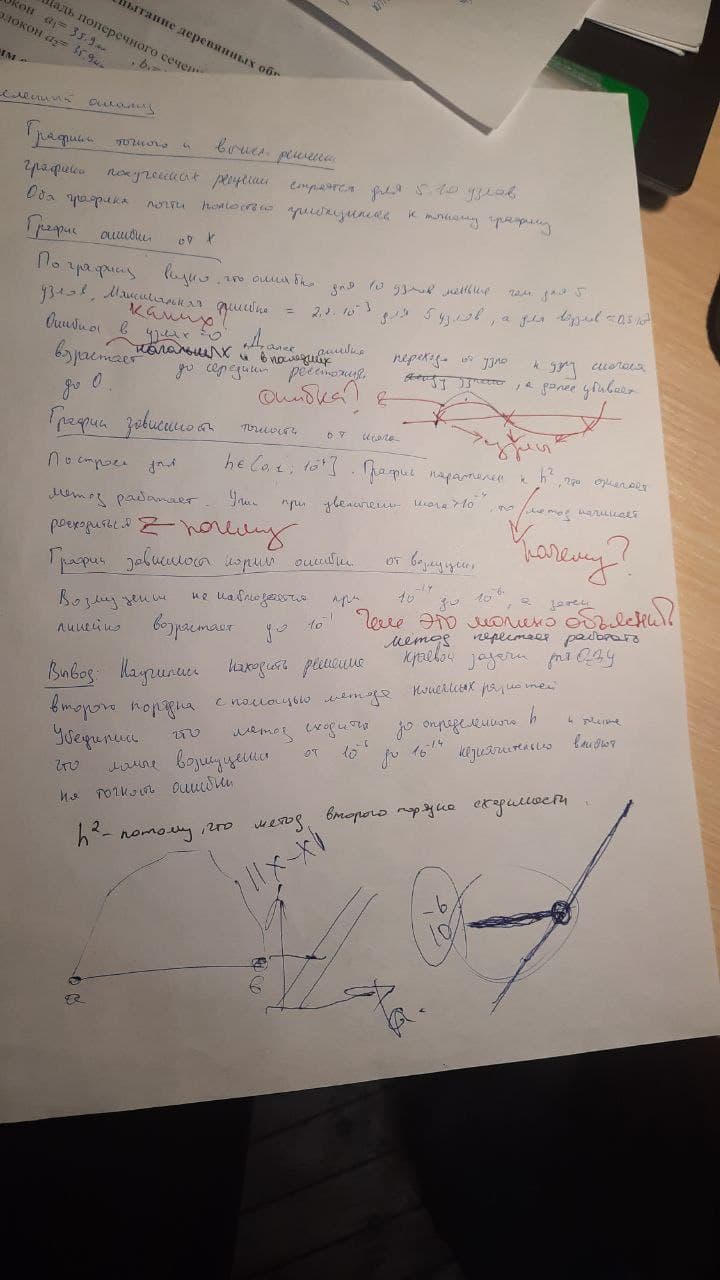 испытание деревянных обр
щадь поперечного сечен
олокон a₁= 35.9 мм , b₁=
олокон a₂= 35.9мм
сленный анализ
Графики точного и вычисл. решения
Графики полученных решений строятся для 5, 10 узлов
Оба графика почти полностью приближаются к точному графику
График ошибки от x
По графику видно, что ошибка для 10 узлов меньше чем для 5
узлов. Максимальная ошибка = 10⁻³ для 5 узлов, а для 10 узлов
каких?
Ошибка в узлах =0. Далее ошибка переходя от узла к узлу сначала
начальных и в последних
возрастает до середины расстояния , а далее убывает
до 0.
Ошибка?
узлы
График зависимости точности от шага
Построен для h∈[0,1; 10⁻⁴]. График параллелен к h², что означает
метод работает. при увеличении шага метод начинает
расходиться ← почему
почему?
График зависимости нормы ошибки от возмущения
Возмущения не наблюдается при 10⁻¹⁴ до 10⁻⁶, а затем
линейно возрастает до 10⁻¹ Чем это можно объяснить?
метод перестает работать
Вывод: Научились находить решение краевой задачи для ОДУ
второго порядка с помощью метода конечных разностей
Убедились что метод сходится до определенного h и также
что малые возмущения от 10⁻⁶ до 10⁻¹⁴ незначительно влияют
на точность ошибки
h² - потому, что метод второго порядка сходимости.
||x-x||
10⁻⁶
a